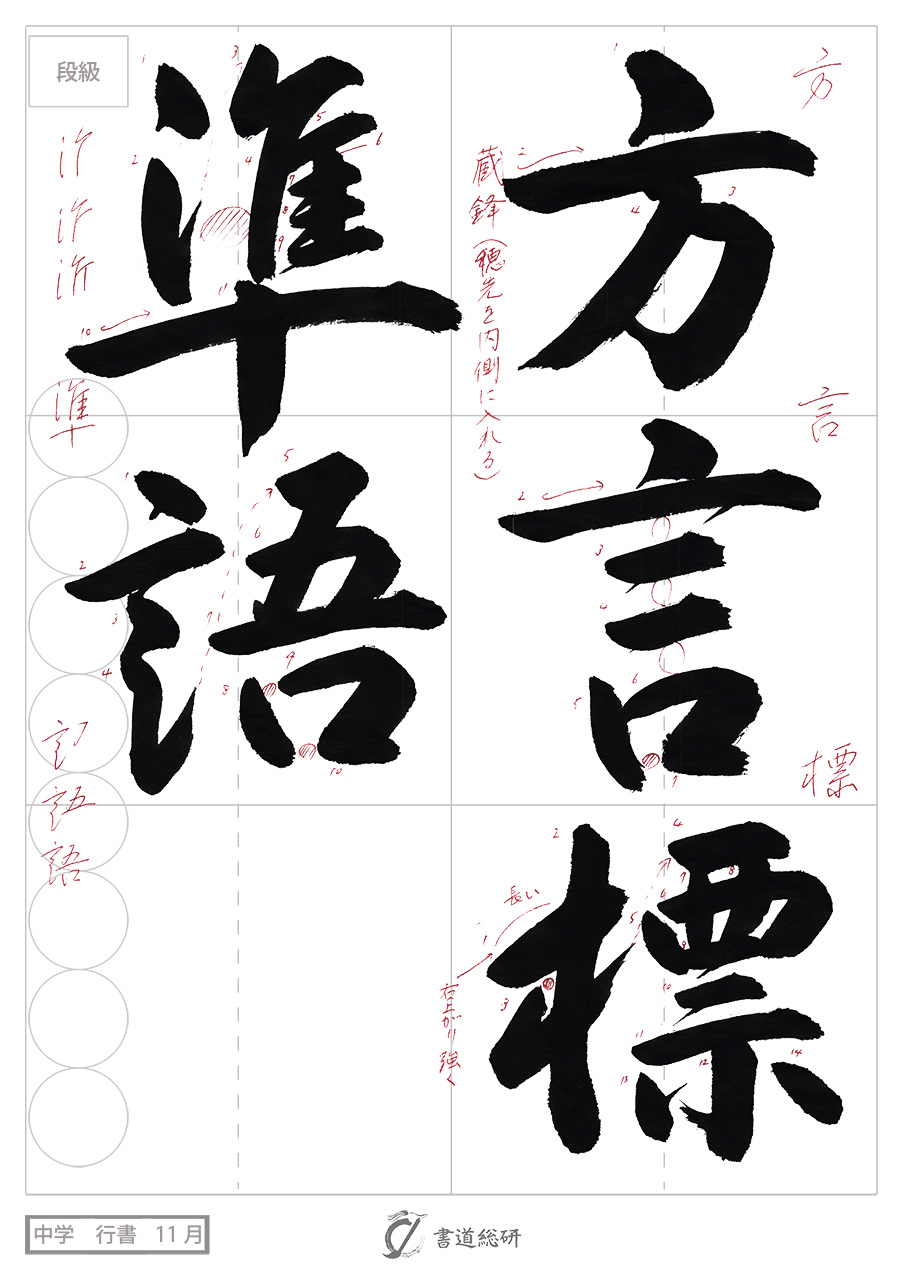 方言標
準語
段級
蔵鋒(穂先を内側に入れる)
長い
右上がり強く
方
言
標
準
語
語
中学 行書 11月
書道総研